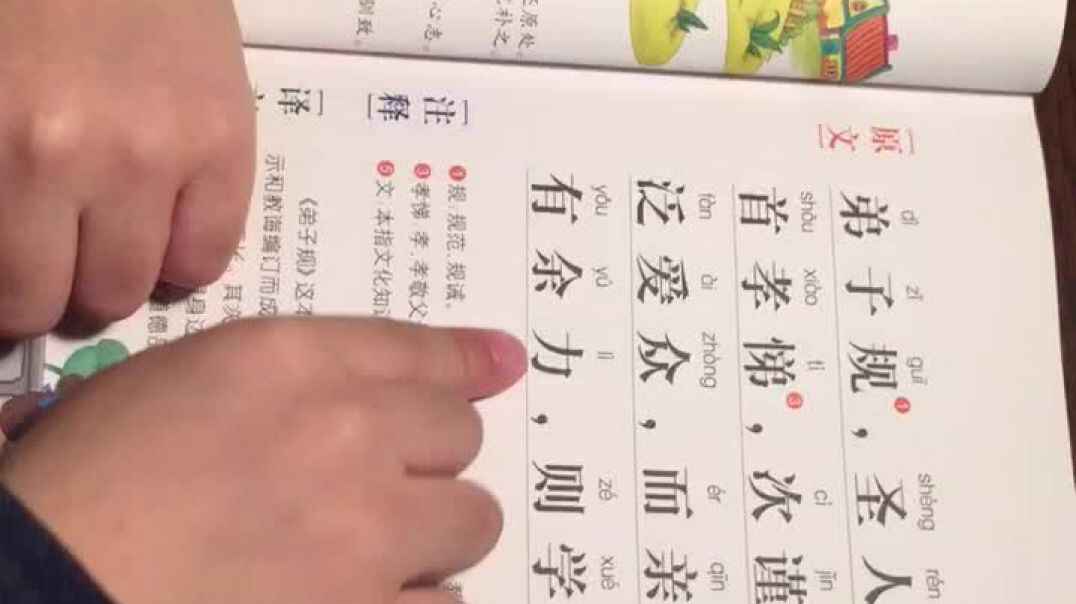 原处
补之。
心志。
别致。
「原文
dì zǐ guī shèng rén
弟子规❶,圣人
shǒu xiào tì cì jǐn
首孝悌❸,次谨
fàn ài zhòng ér qīn
泛爱众,而亲
yǒu yú lì zé xué
有余力,则学
「注释」
❶规 规范,规诫。
❸孝悌 孝,孝敬父
❺文 本指文化知
「译
《弟子规》这本
示和教诲编订而成
其次
身
道德